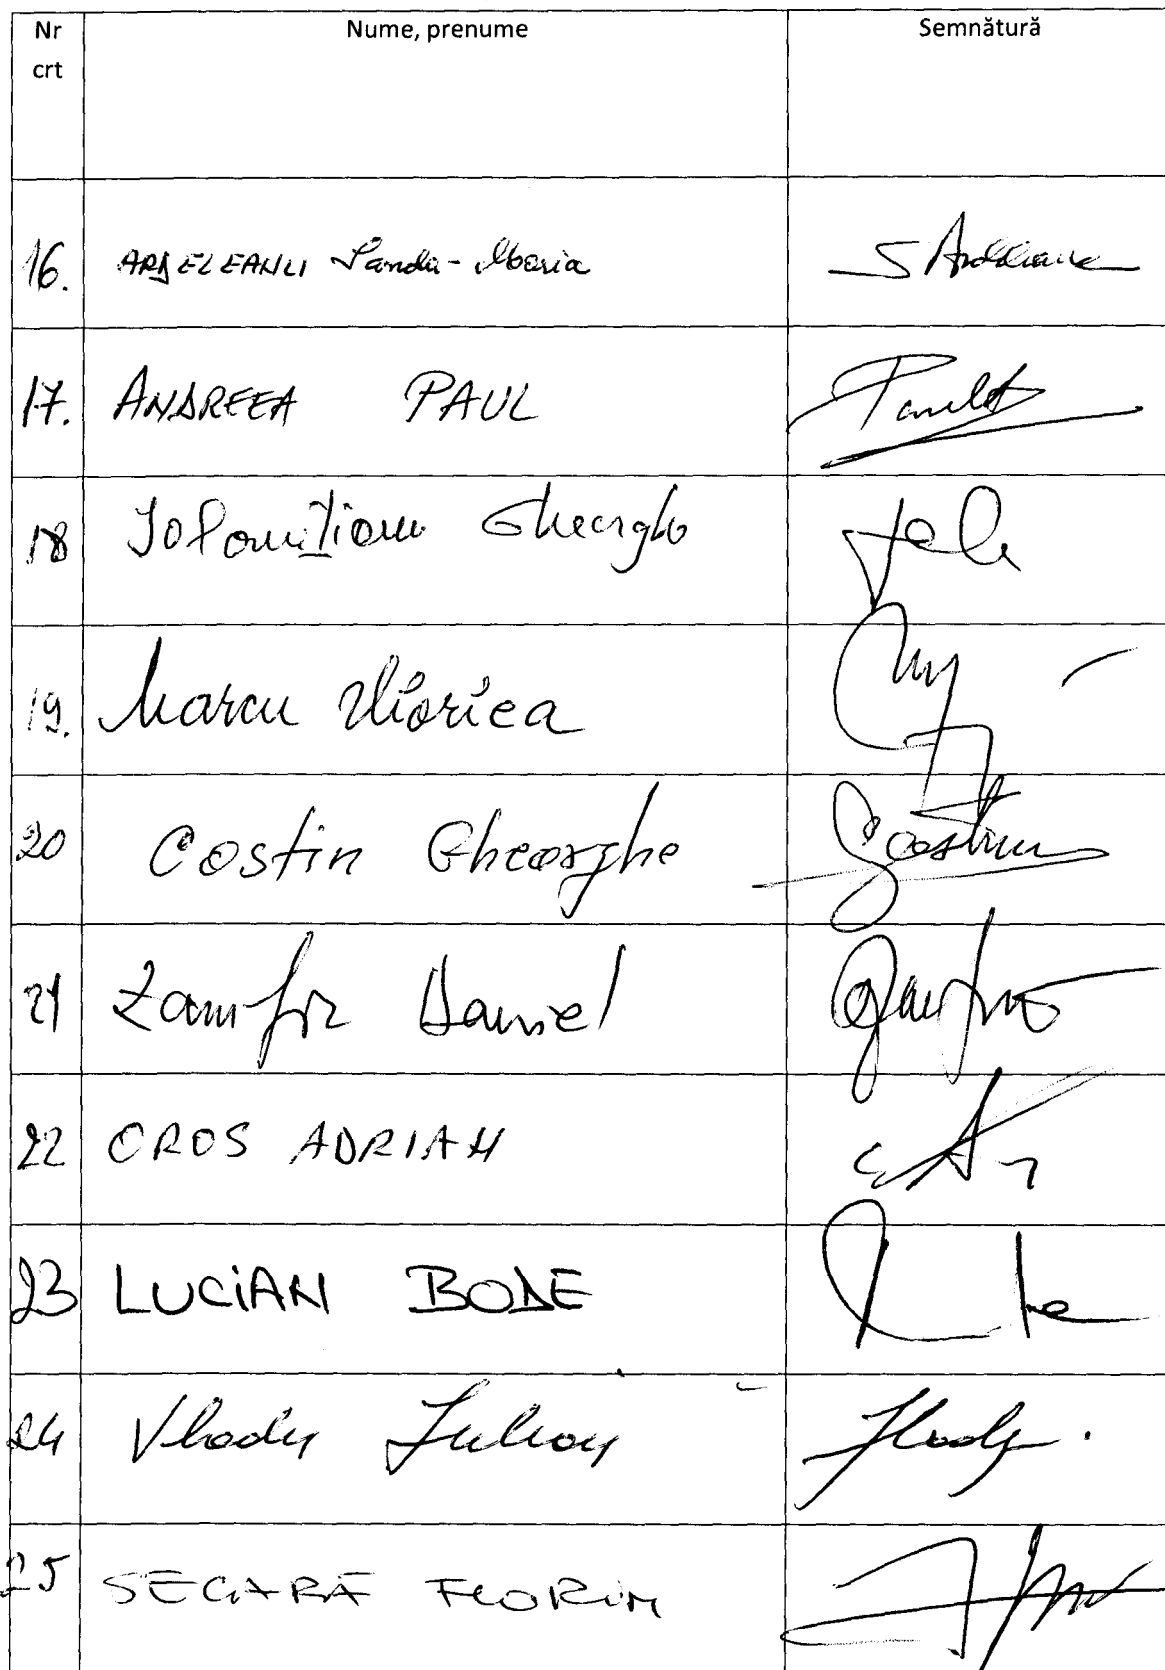 Nr crt Nume, prenume Semnătură
16. ARDELEANU Sanda-Maria
17. ANDREEA PAUL
18 Ialomițianu Gheorghe
19. Marcu Viorica
20 Costin Gheorghe Costin
21 Zamfir Daniel
22 OROS ADRIAN
23 LUCIAN BODE
24 Vladu Iulian
25 SECARĂ FLORIN